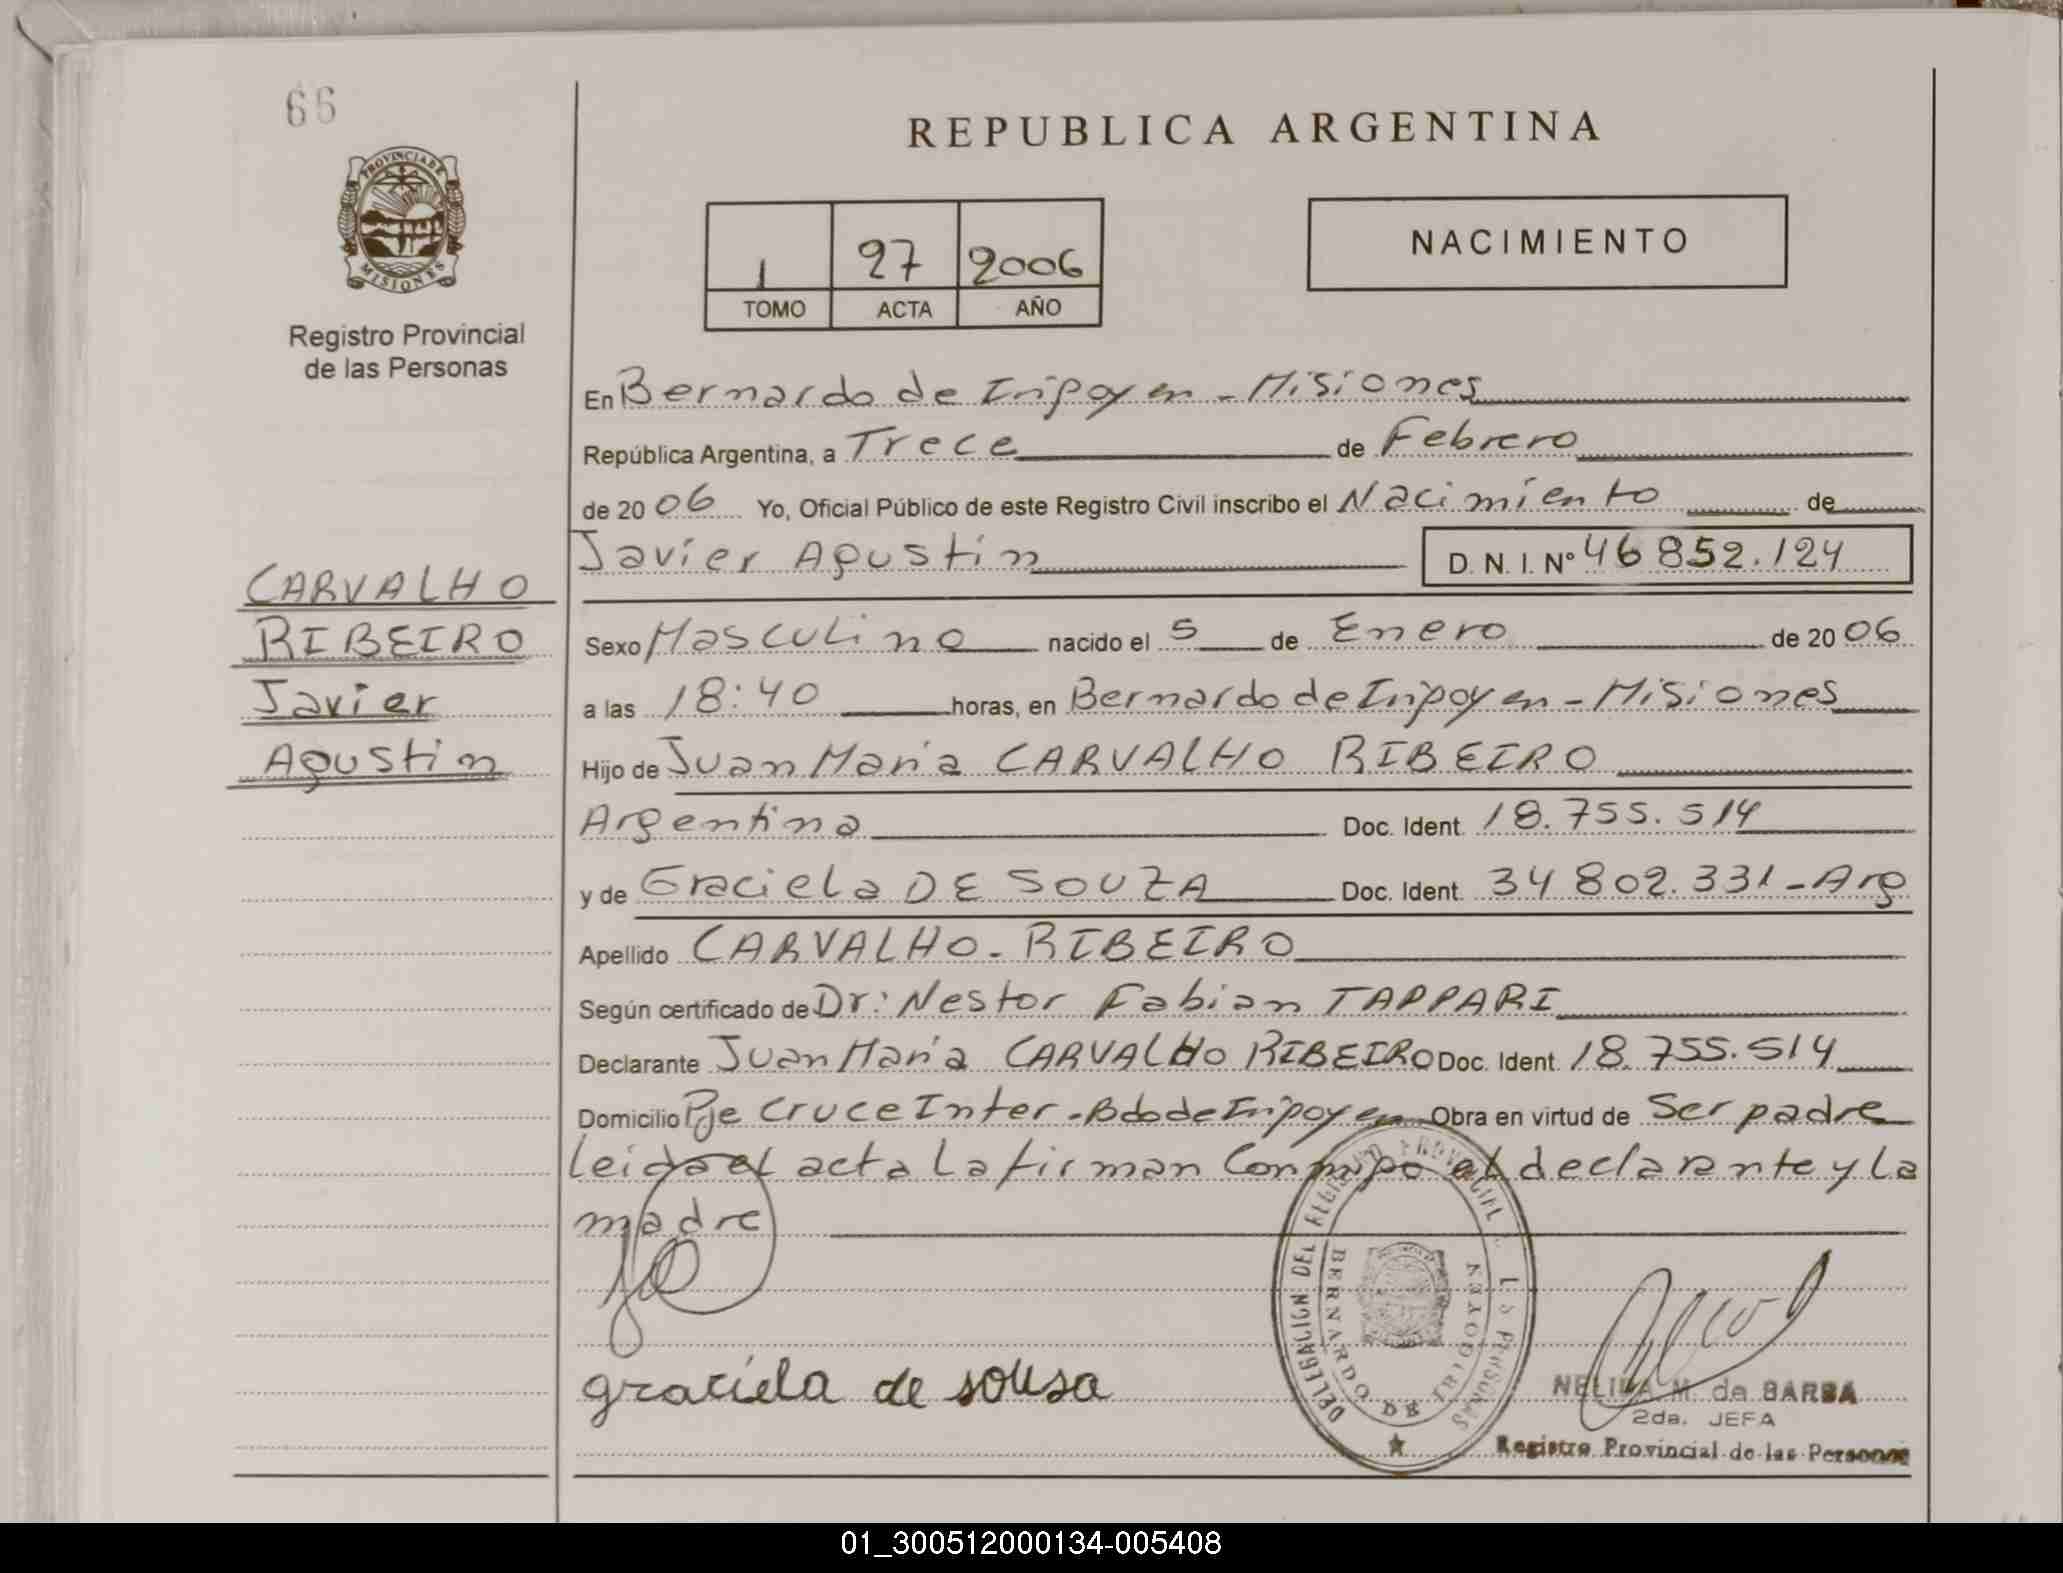 66
PROVINCIA DE
MISIONES
Registro Provincial
de las Personas
REPUBLICA ARGENTINA
1 27 2006
TOMO ACTA AÑO
NACIMIENTO
En Bernardo de Irigoyen - Misiones
República Argentina, a Trece de Febrero
de 2006 Yo, Oficial Público de este Registro Civil inscribo el Nacimiento de
Javier Agustin D. N. I. Nº 46 852.124
CARVALHO
RIBEIRO
Javier
Agustin
Sexo Masculino nacido el 5 de Enero de 2006
a las 18:40 horas, en Bernardo de Irigoyen - Misiones
Hijo de Juan María CARVALHO RIBEIRO
Argentina Doc. Ident. 18.755.514
y de Graciela DE SOUZA Doc. Ident. 34 802.331 - Arg
Apellido CARVALHO - RIBEIRO
Según certificado de Dr: Nestor Fabian TAPPARI
Declarante Juan María CARVALHO RIBEIRO Doc. Ident. 18.755.514
Domicilio Pje Cruce Inter - Bdo de Irigoyen Obra en virtud de Ser padre
Leida el acta la firman conmigo el declarante y la
madre
graciela de sousa
DELEGACION DEL REGISTRO PROVINCIAL DE LAS PERSONAS
BERNARDO DE IRIGOYEN
NELIDA M. de BARBA
2da. JEFA
Registro Provincial de las Personas
01_300512000134-005408